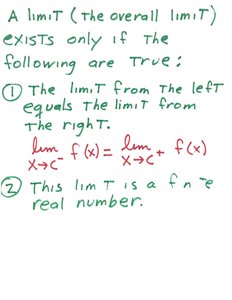 A limit (the overall limit)
exists only if the
following are true:
① The limit from the left
equals the limit from
the right.
lim x→c⁻ f(x) = lim x→c⁺ f(x)
② This lim t is a f n te
real number.